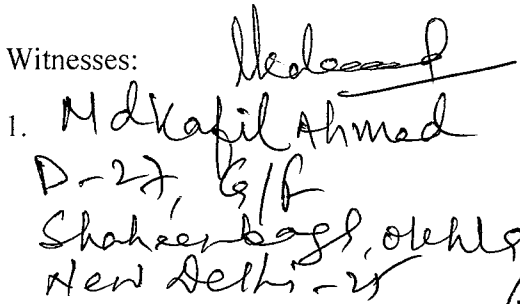 Witnesses:
1. Md Kafil Ahmad
D-27, G/F
Shaheenbagh, Okhla
New Delhi - 25